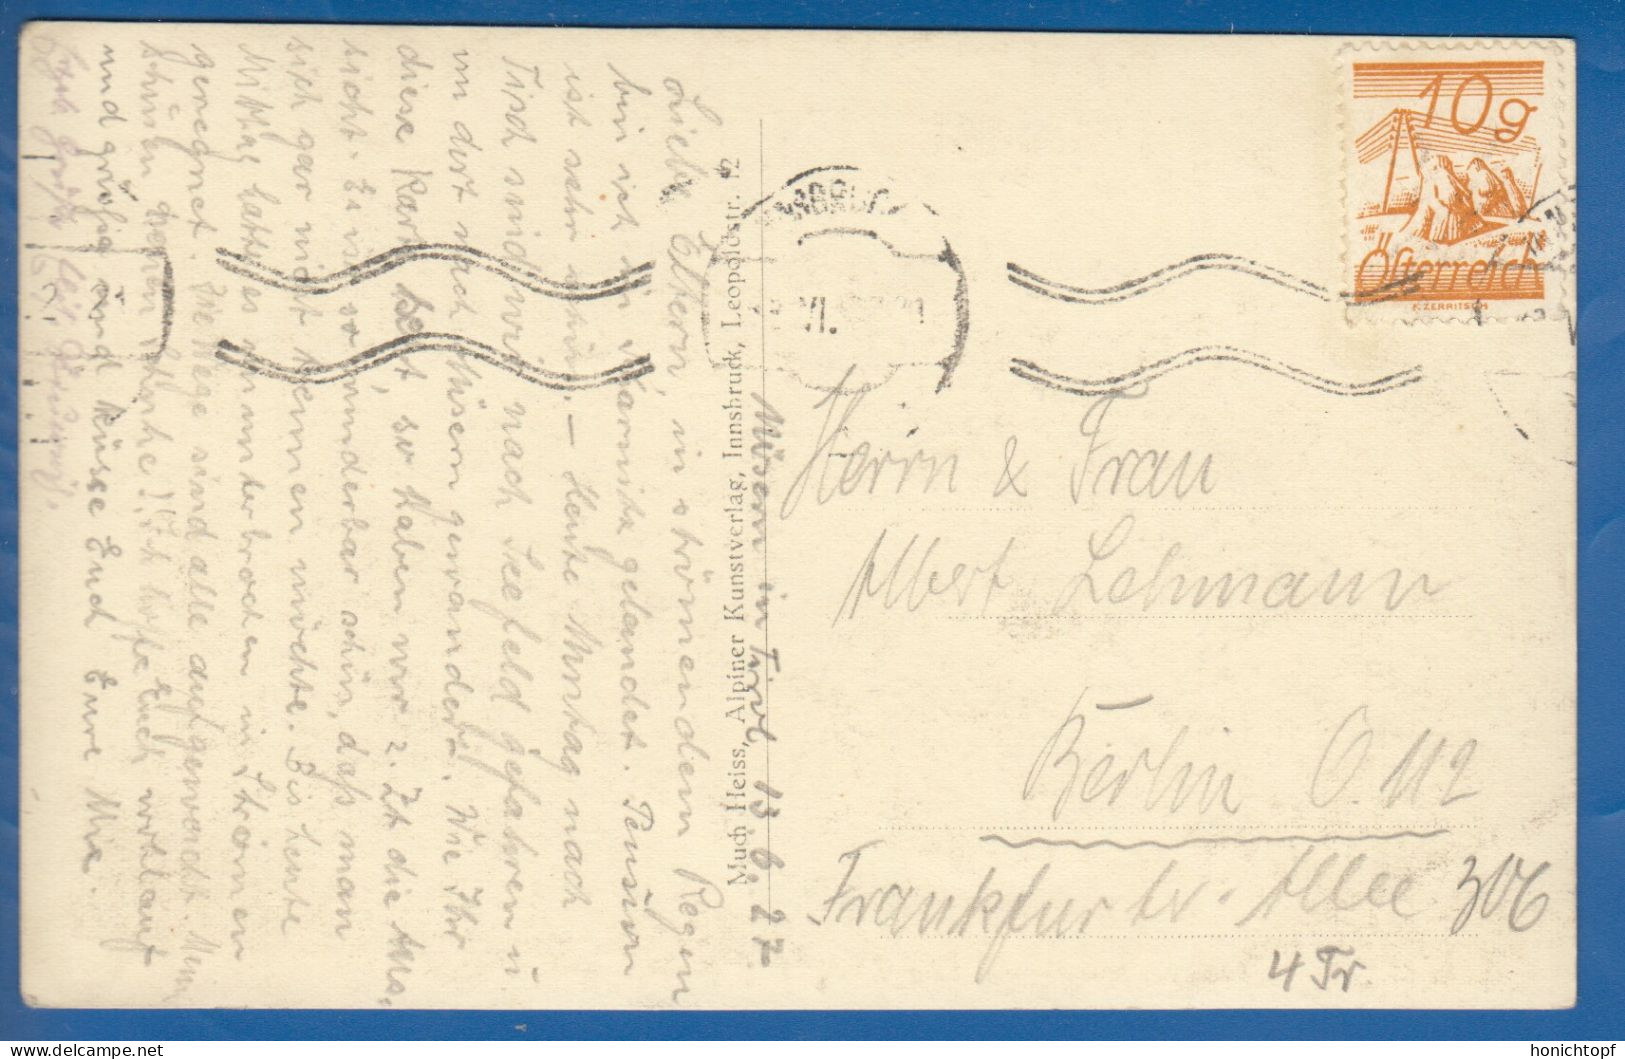 Mösern in Tirol 13. 6. 27
Liebe Eltern, in strömendem Regen
bin ich in Karwitz gelandet. Pension
ist sehr schön. — Heute Montag nach
Tisch sind wir nach Seefeld gefahren u.
von dort nach Mösern gewandert. Wie Ihr
diese Karte seht, so haben wir z. Zt die Aus-
sicht. Es ist so wunderbar schön, daß man
sich gar nicht trennen möchte. Bis heute
Mittag hatt es ununterbrochen in Strömen
geregnet. Die Wege sind alle aufgeweicht. Nun
schönen Schuhe! Ich hoffe Euch wohlauf
und grüße und küsse Euch Eure
Much Heiss, Alpiner Kunstverlag, Innsbruck, Leopoldstr. 12
INNSBRUCK
VI.
21
10g
Österreich
F. ZERRITSCH
Herrn & Frau
Albert Lehmann
Berlin O. 112
Frankfurter-Allee 306
4 Tr.
honichtopf
© delcampe.net